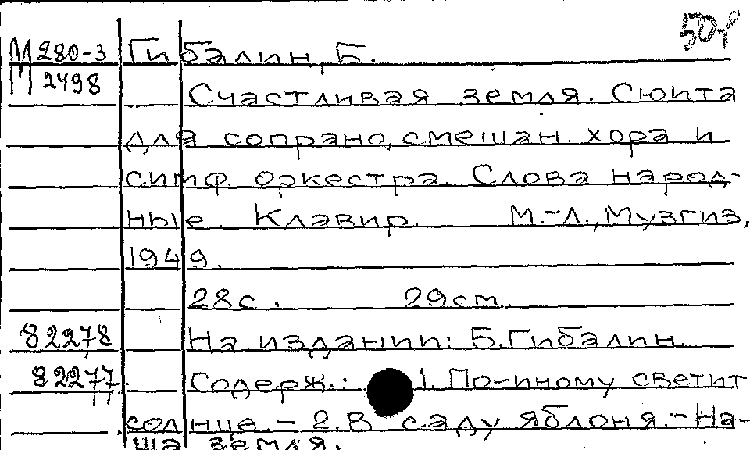 М 280-3 Гибалин, Б.
М 2498
Счастливая земля. Сюита
для сопрано, смешан. хора и
симф. оркестра. Слова народ-
ные. Клавир. М.-Л., Музгиз,
1949.
28с. 29см.
82278 На издании: Б. Гибалин.
82277 Содерж.: 1. По-иному светит
солнце. - 2. В саду яблоня. - На-
ша земля.